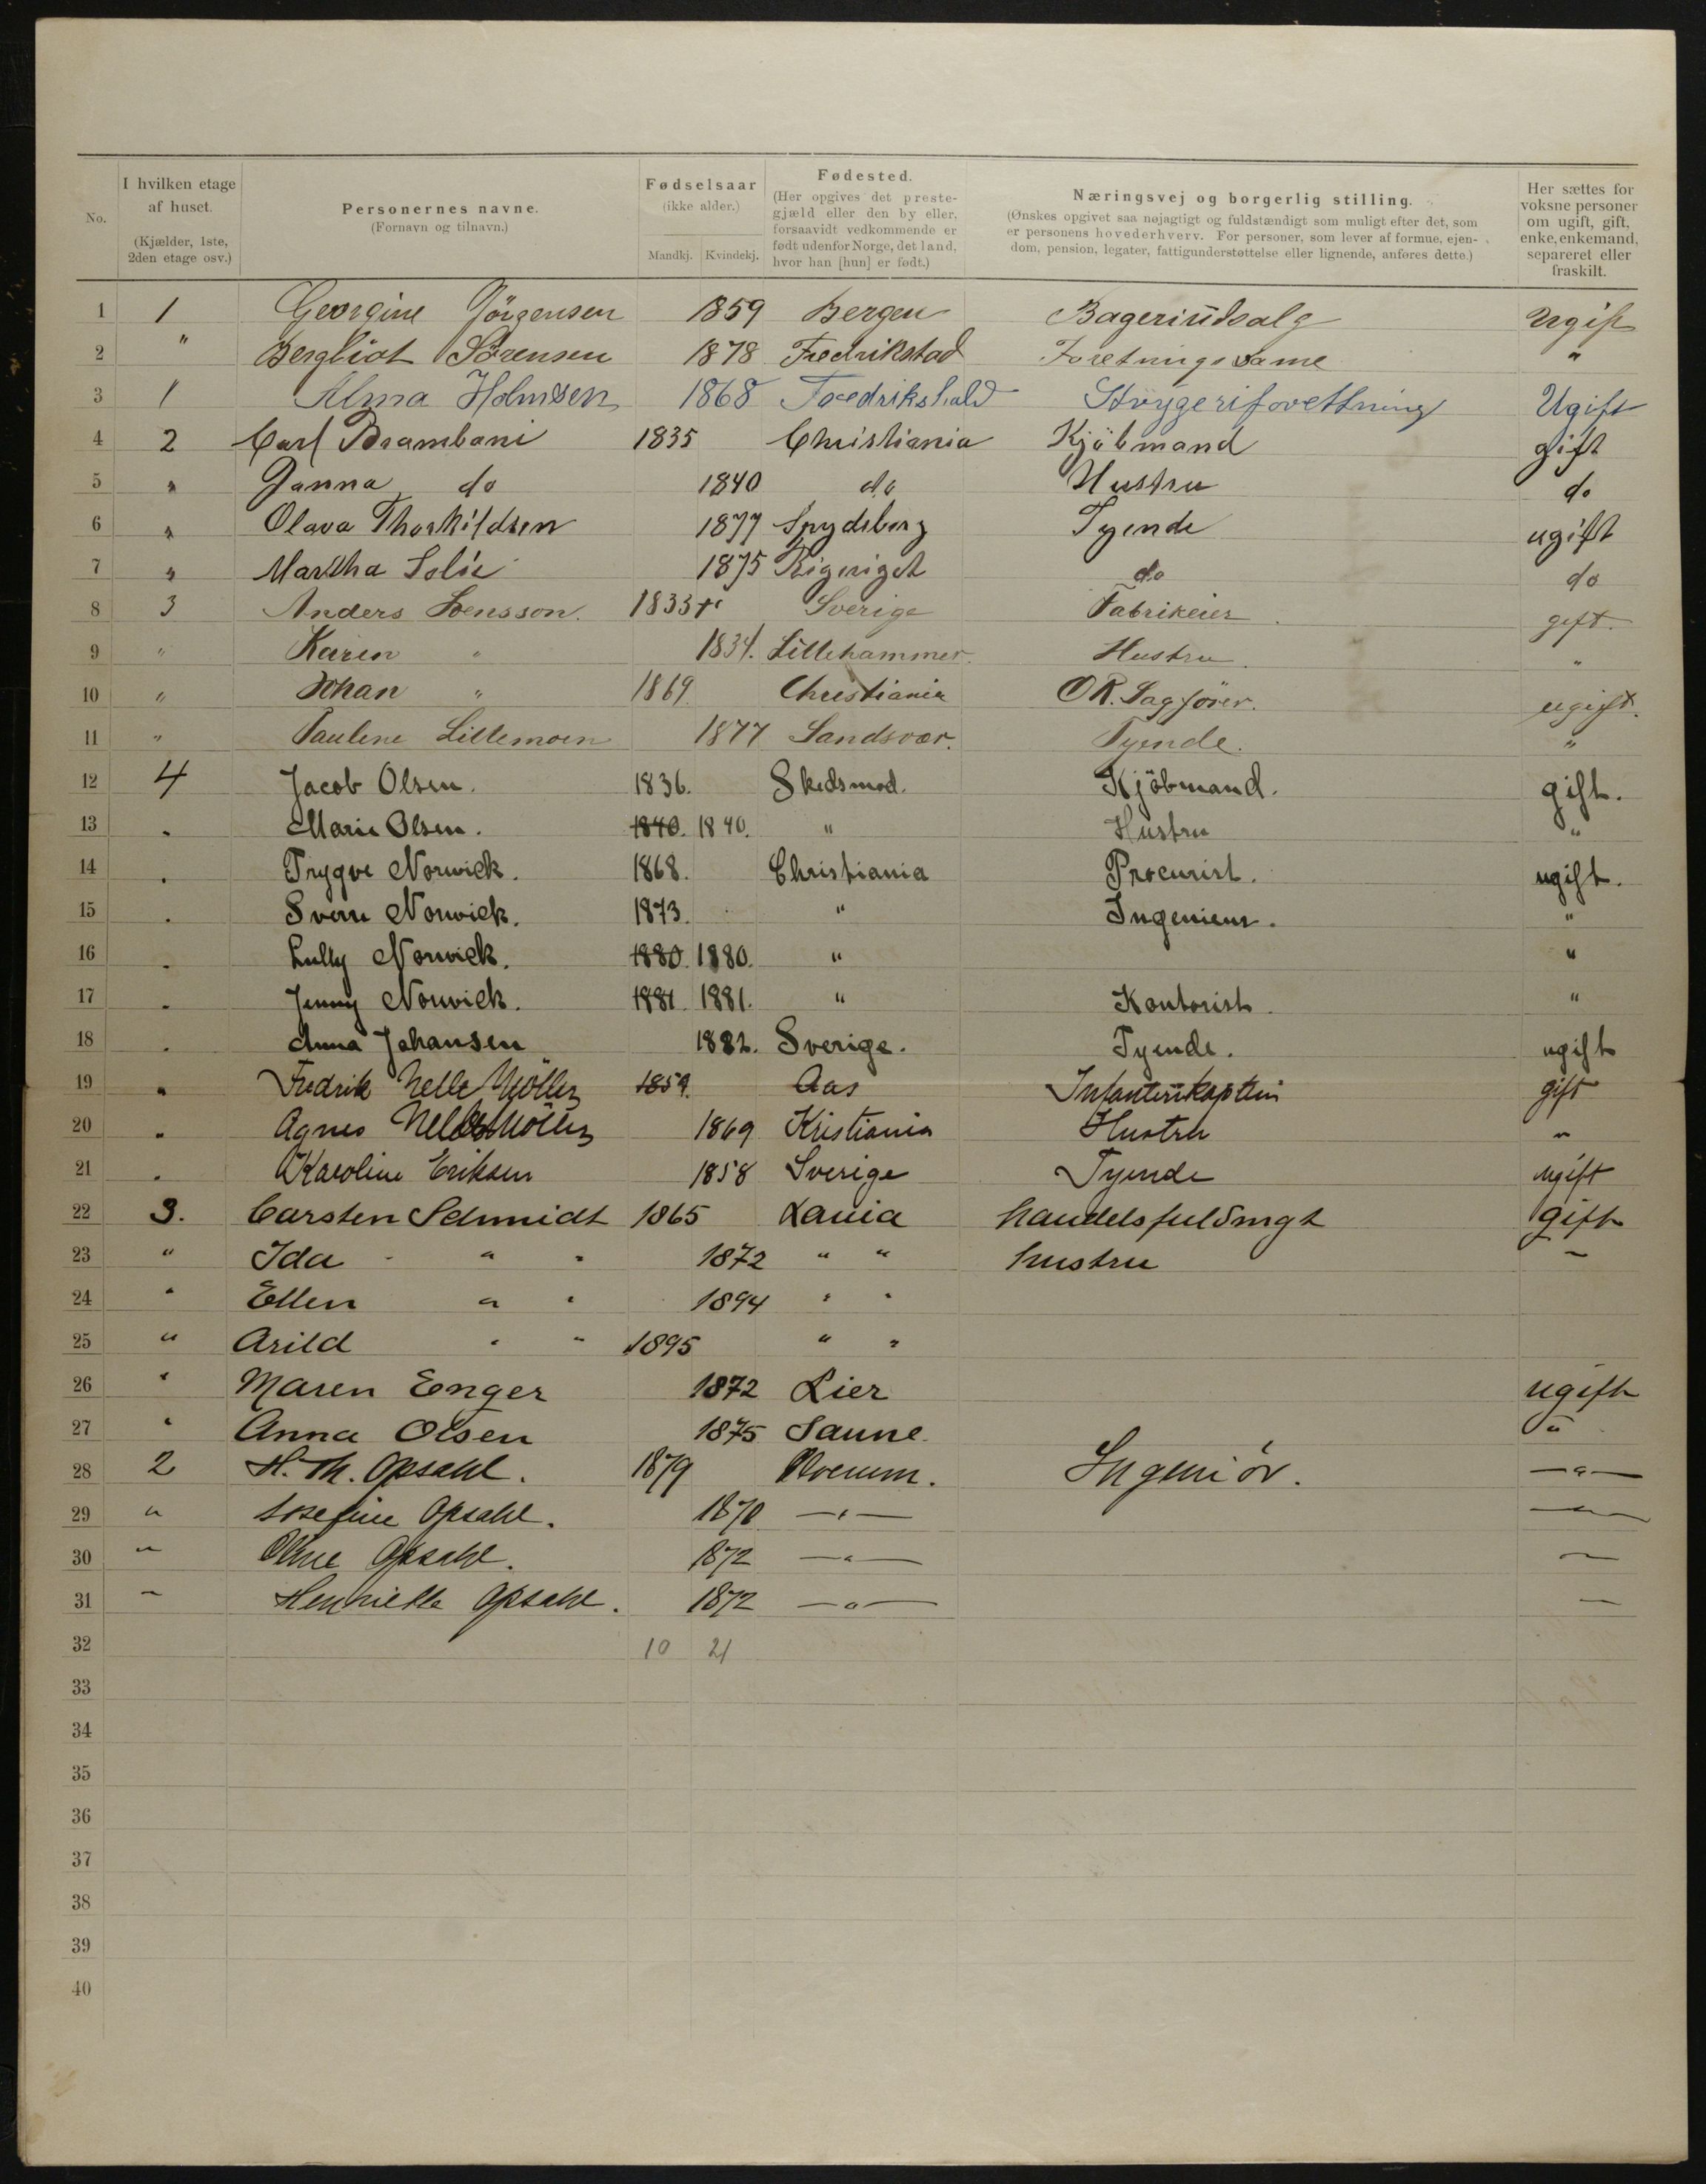 No. I hvilken etage af huset. (Kjælder, 1ste, 2den etage osv.) Personernes navne. (Fornavn og tilnavn.) Fødselsaar (ikke alder.) Mandkj. Kvindekj. Fødested. (Her opgives det prestegjæld eller den by eller, forsaavidt vedkommende er født udenfor Norge, det land, hvor han [hun] er født.) Næringsvej og borgerlig stilling. (Ønskes opgivet saa nøjagtigt og fuldstændigt som muligt efter det, som er personens hovederhverv. For personer, som lever af formue, ejendom, pension, legater, fattigunderstøttelse eller lignende, anføres dette.) Her sættes for voksne personer om ugift, gift, enke, enkemand, separeret eller fraskilt.
1 1 Georgine Jörgensen 1859 Bergen Bageriudsalg Ugift
2 " Bergliot Sörensen 1878 Fredrikstad Foretningsdame "
3 1 Alma Holmsen 1868 Fredrikshald Strygeriforettning Ugift
4 2 Carl Brambani 1835 Christiania Kjöbmand gift
5 " Janna do 1840 do Hustru do
6 " Olava Thorkildsen 1877 Spydeberg Tyende ugift
7 " Martha Solie 1875 Rigeriget do do
8 3 Anders Svensson. 1833 Sverige Fabrikeier gift.
9 " Karen " 1834. Lillehammer. Hustru. "
10 " Johan " 1869. Christiania O.R. Sagförer. ugift.
11 " Pauline Lillemoen 1877 Sandsvær. Tyende. "
12 4 Jacob Olsen. 1836. Skedsmod. Kjöbmand. gift.
13 . Marie Olsen. 1840. 1840. " Hustru "
14 . Trygve Norwick. 1868. Christiania Procurist. ugift.
15 . Sverre Norwick. 1873. " Ingenieur. "
16 . Lully Norwick. 1880. 1880. " "
17 . Jenny Norwick. 1881. 1881. " Kontorist. "
18 . Anna Johansen 1882. Sverige. Tyende. ugift
19 " Fredrik Nelle Möller 1859. Aas Infanterikaptein gift
20 " Agnes Möller 1869 Kristiania Hustru "
21 . Karoline Eriksen 1858 Sverige Tyende ugift
22 3. Carsten Schmidt 1865 Xania handelsfuldmgt gift
23 " Ida " " 1872 " " hustru "
24 " Ellen " " 1894 " "
25 " Arild " " 1895 " "
26 " Maren Enger 1872 Lier ugift
27 " Anna Olsen 1875 Saune "
28 2 H. Th. Opsahl. 1879 Ingeniör. —"—
29 " Josefine Opsahl. 1870 —"— —"—
30 " Opsahl. 1872 —"— "
31 " Henriette Opsahl. 1872 —"— "
32 10 21
33
34
35
36
37
38
39
40